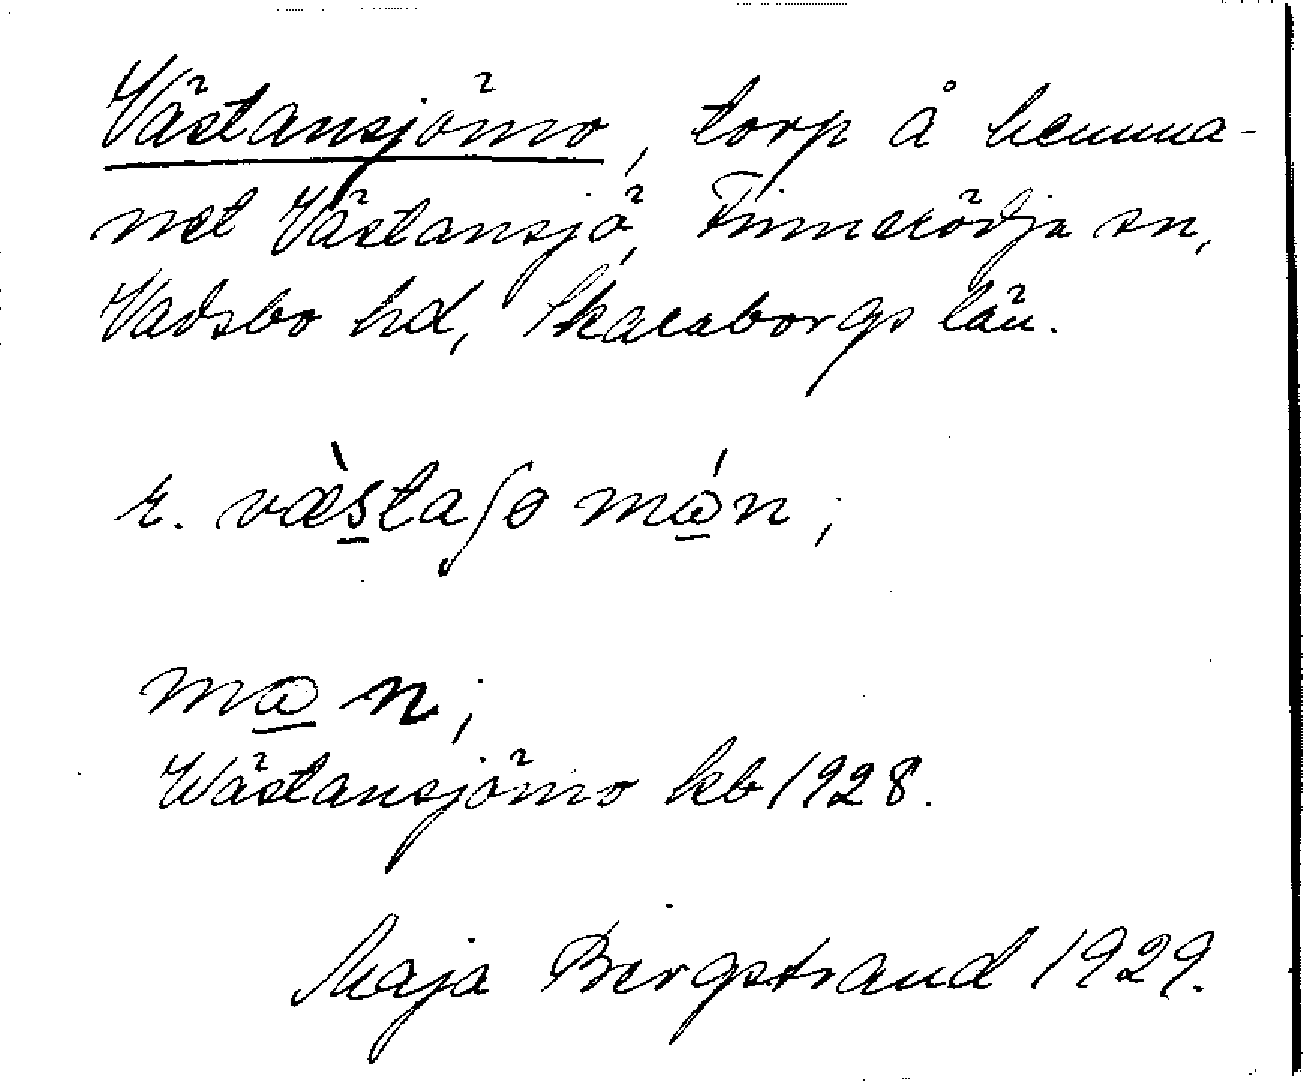 Västansjömo, torp å hemma-
net Västansjö, Finnerödja sn,
Vadsbo hd, Skaraborgs län.
r. væ̀s̲taʃɵ mɷ̲́n;
mɷ̲n;
Wästansjömo kb 1928.
Maja Bergstrand 1929.